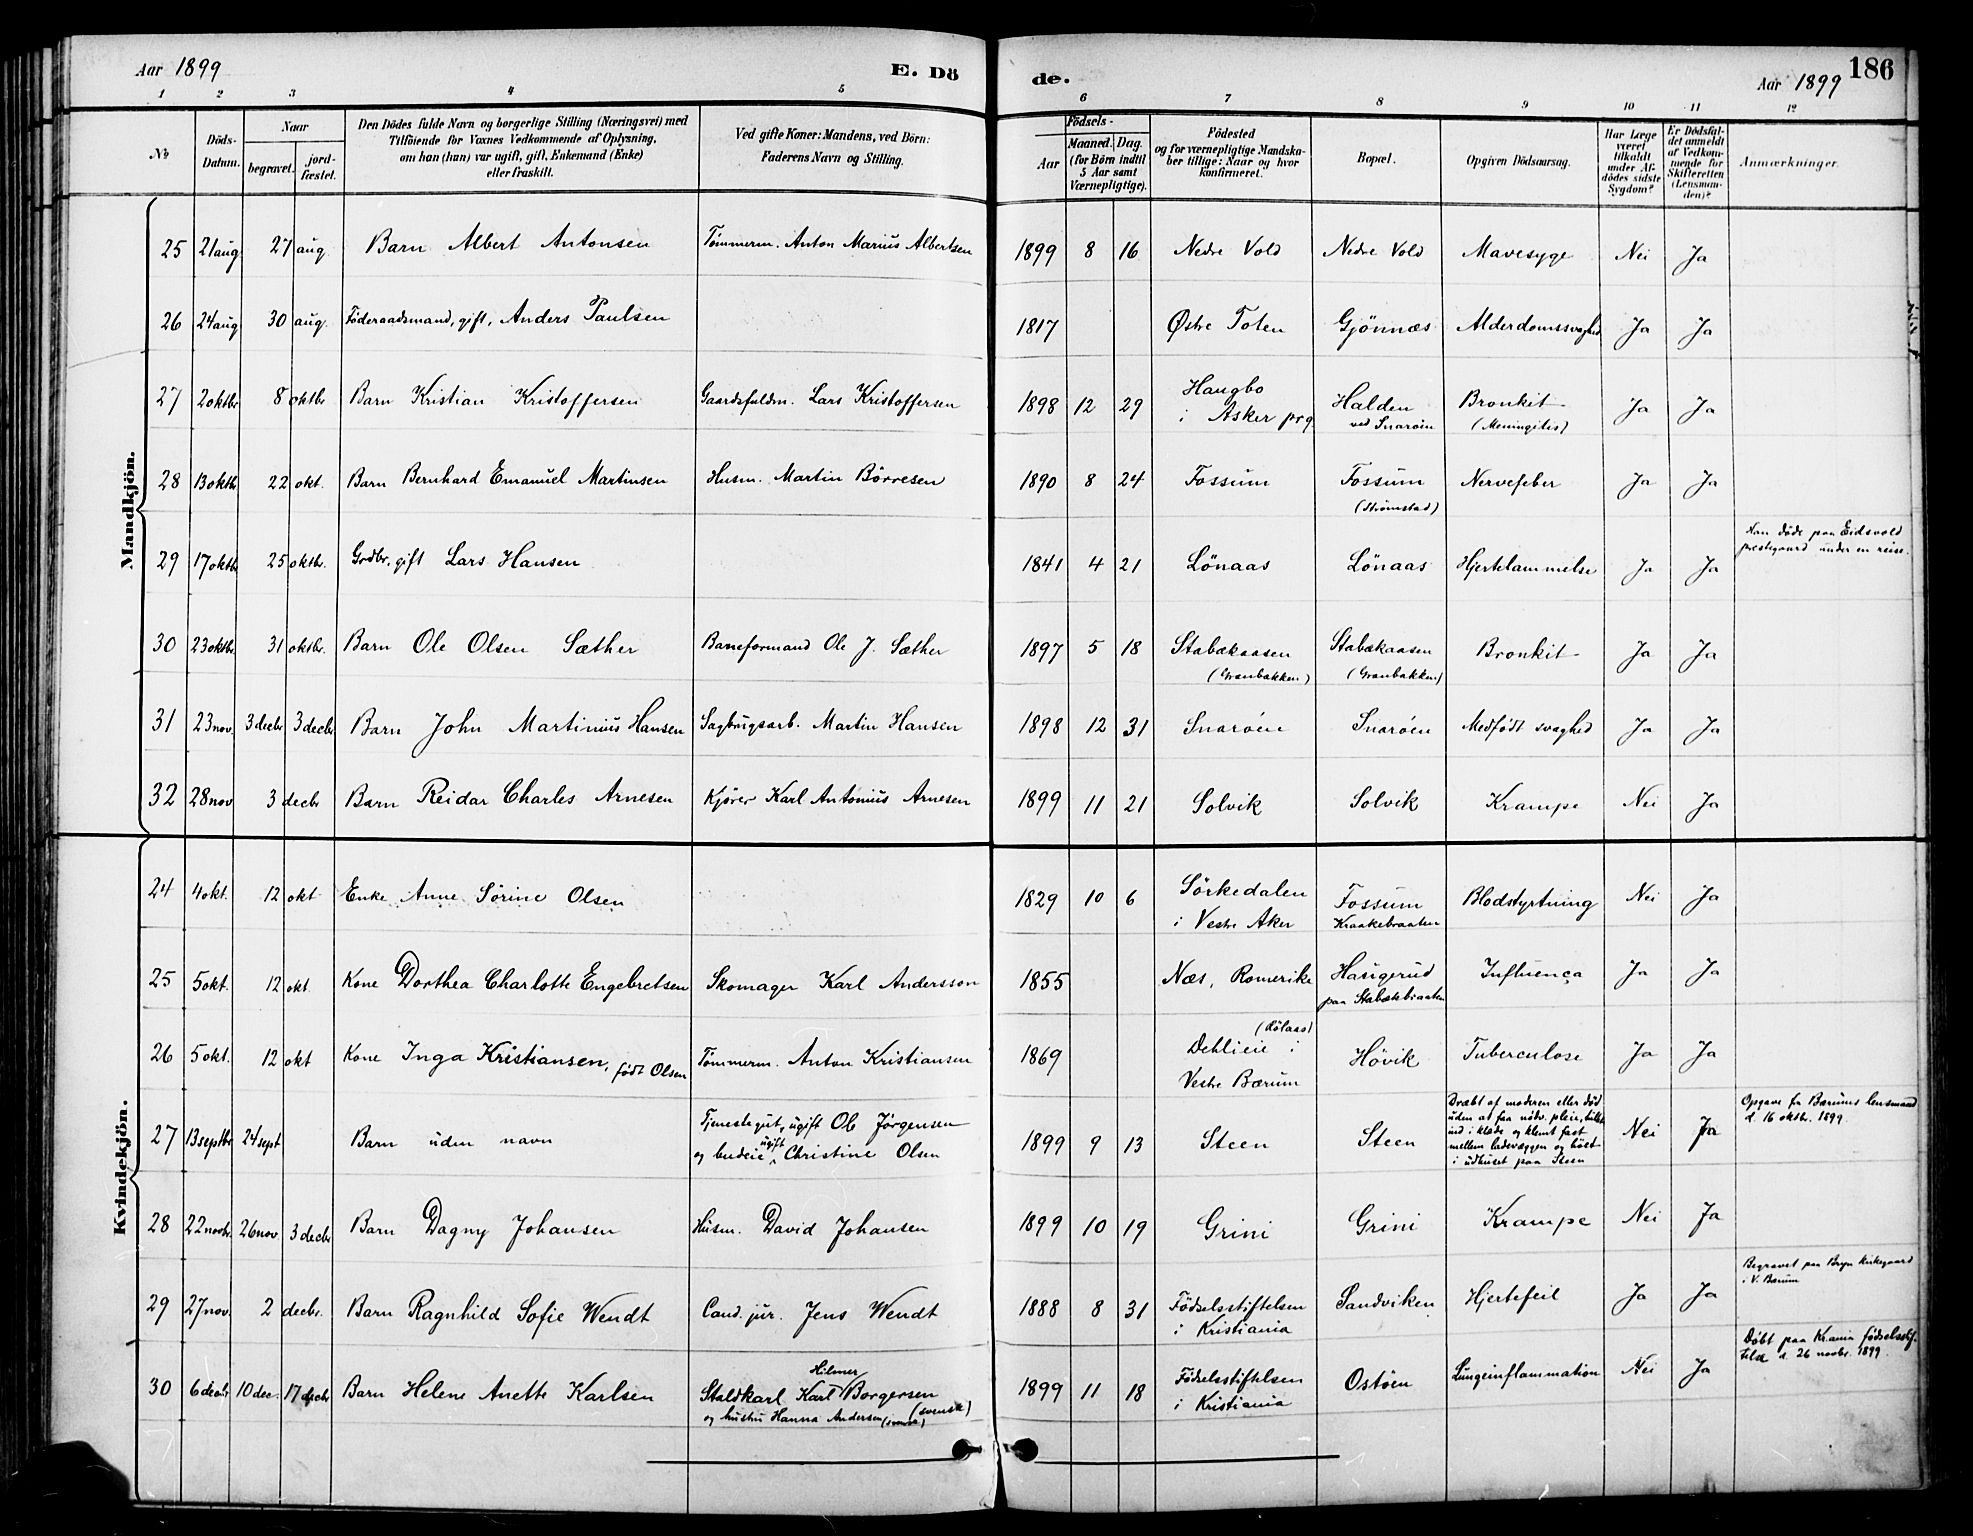 Aar 1899
E. Dö
de.
Aar 1899
186
1 2 3 4 5 6 7 8 9 10 11 12
No
Döds-Datum.
Naar
begravet.
jord-fæstet.
Den Dödes fulde Navn og borgerlige Stilling (Næringsvei) med
Tilföiende for Voxnes Vedkommende af Oplysning,
om han (hun) var ugift, gift, Enkemand (Enke)
eller fraskilt.
Ved gifte Koner: Mandens, ved Börn:
Faderens Navn og Stilling.
Födsels-
Aar
Maaned. Dag.
(for Börn indtil
5 Aar samt
Værnepligtige).
Födested
og for værnepligtige Mandska-
ber tillige: Naar og hvor
konfirmeret.
Bopæl.
Opgiven Dödsaarsag.
Har Læge
været
tilkaldt
under Af-
dödes sidste
Sygdom?
Er Dödsfal-
det anmeldt
af Vedkom-
mende for
Skifteretten
(Lensman-
den)?
Anmærkninger.
Mandkjön.
25 21 aug 27 aug. Barn Albert Antonsen Tømmerm. Anton Marius Albertsen 1899 8 16 Nedre Vold Nedre Vold Mavesyge Nei Ja
26 24 aug 30 aug. Föderaadsmand, gift, Anders Paulsen 1817 Østre Toten Gjönnæs Alderdomssvaghed Ja Ja
27 2 oktbr 8 oktbr Barn Kristian Kristoffersen Gaardsfuldm. Lars Kristoffersen 1898 12 29 Haugbo i Asker prg. Halden ved Snaröen Bronkit (Meningitis) Ja Ja
28 13 oktbr 22 okt. Barn Bernhard Emanuel Martinsen Husm. Martin Börresen 1890 8 24 Fossum Fossum (Strömstad) Nervefeber Ja Ja
29 17 oktbr 25 oktbr. Grdbr. gift Lars Hansen 1841 4 21 Lönaas Lönaas Hjertelammelse Ja Ja Han döde paa Eidsvold prestegaard under en reise.
30 23 oktbr 31 oktbr. Barn Ole Olsen Sæther Baneformand Ole J. Sæther 1897 5 18 Stabækaasen (Granbakken) Stabækaasen (Granbakken) Bronkit Ja Ja
31 23 nov. 3 decbr 3 decbr Barn John Martinius Hansen Sagbrugsarb. Martin Hansen 1898 12 31 Snaröen Snaröen Medfödt svaghed Ja Ja
32 28 nov 3 decbr Barn Reidar Charles Arnesen Kjörer Karl Antonius Arnesen 1899 11 21 Solvik Solvik Krampe Nei Ja
Kvindekjön.
24 4 okt. 12 okt Enke Anne Sörine Olsen 1829 10 6 Sörkedalen i Vestre Aker Fossum Kraakebraaten Blodstyrtning Nei Ja
25 5 okt. 12 okt Kone Dorthea Charlotte Engebretsen Skomager Karl Andersson 1855 Næs, Romerike Haugerud paa Stabækbraaten Influença Ja Ja
26 5 okt. 12 okt Kone Inga Kristiansen, födt Olsen Tömmerm. Anton Kristiansen 1869 Dehlieie (Kölaas) i Vestre Bærum Hövik Tuberculose Ja Ja
27 13 septbr 24 sept Barn uden navn Tjenestegut, ugift Ole Jörgensen og budeie ugift Christine Olsen 1899 9 13 Steen Steen Dræbt af moderen eller död uden at faa nödv. pleie, tullet ind i klæde og klemt fast mellem ladevæggen og höet i udhuset paa Steen Nei Ja Opgave fr. Bærums lensmand d. 16 oktbr. 1899.
28 22 novbr. 26 nov. 3 decbr Barn Dagny Johansen Husm. David Johansen 1899 10 19 Grini Grini Krampe Nei Ja
29 27 nov. 2 decbr. Barn Ragnhild Sofie Wendt Cand. jur. Jens Wendt 1888 8 31 Födselsstiftelsen i Kristiania Sandviken Hjertefeil Ja Ja Begravet paa Bryn kirkegaard i V. Bærum
30 6 decbr 10 dec. 17 decbr Barn Helene Anette Karlsen Staldkarl Karl Hilmer Borgersen (svensk) og hustru Hanna Andersen (svensk) 1899 11 18 Födselsstiftelsen i Kristiania Ostöen Lungeinflammation Nei Ja Döbt paa Kr.ania födselsstif- telse d. 26 novbr. 1899.